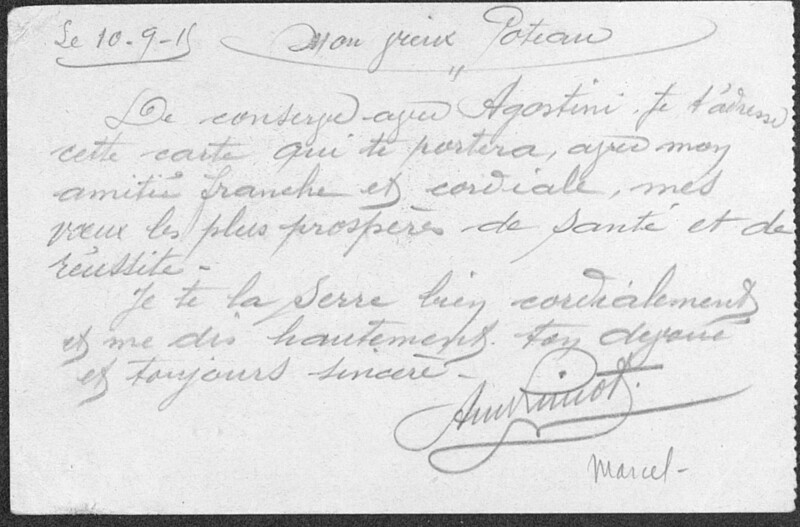 Le 10-9-15 Mon vieux Poteau
De conserve avec Agostini. Je t'adresse
cette carte qui te portera, avec mon
amitié franche et cordiale, mes
vœux les plus prospères de santé et de
réussite -
Je te la serre bien cordialement
et me dis hautement ton dévoué
et toujours sincère -
Marcel -